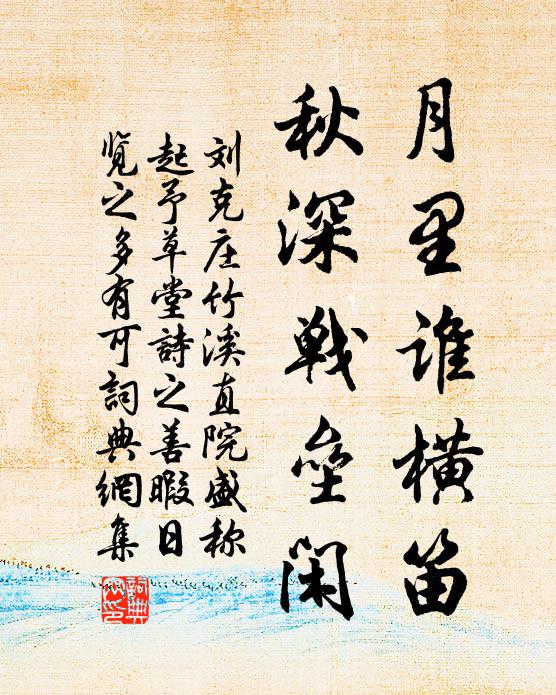 月里谁橫笛
秋深戦垒闲
刘克庄竹溪直院盛称
起予草堂詩之善暇日
览之多有可詞典網集